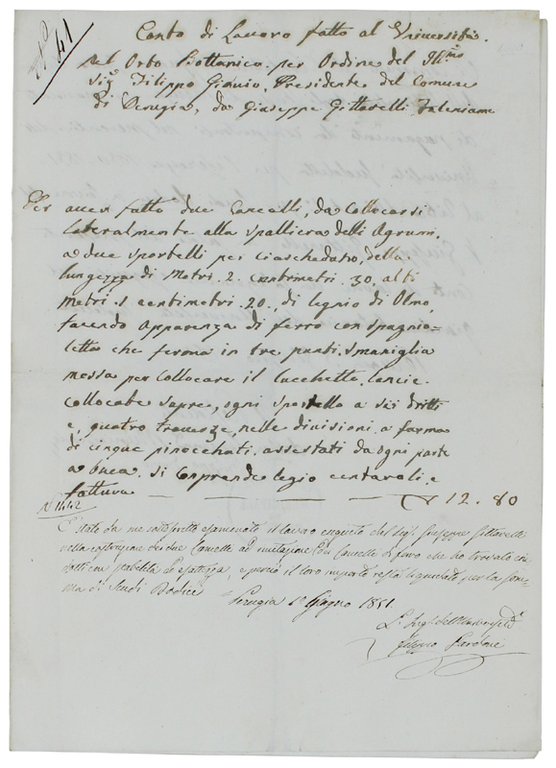 N° 41
Conto di Lavoro fatto al Universibà.
nel Orbo Bottanico. per Ordine del Ill.mo
Sig.r Filippo Giunio, Presidente del Comune
di Perugia, da Giuseppe Gittavelli Faleniame
Per aver fatto due Cancelli, da Collocarsi
Lateralmente alla spalliera delli Agrumi.
a due sportelli per ciaschedato, della
lungezza di Metri. 2. Centimetri. 30. alti
Metri. 1 centimetri. 20., di legnio di Olmo,
facendo apparenza di ferro con spagnio=
letta che ferma in tre punti. Smaniglia
messa per Collocare il Lucchetto. Lancie.
Collocate sopra, ogni sportello a sei dritti
e, quattro traverze, nelle divisioni. a forma
di cinque pinocchati. assestati da ogni parte
a buca. si Comprende legio centavoli, e
fattura — — — 12. 80
N. 1442
È stato da me sottoscritto esaminato il lavoro eseguito dal Sig.r Giuseppe Gittavelli
nella costruzione dei due Cancelli ad imitazione di Cancelli di ferro che ho trovato
con stabilità ed esattezza, e perciò il loro importo resta liquidato per la som=
ma di Scudi Dodici
Perugia 1° Giugno 1851
L' dell'
Filippo